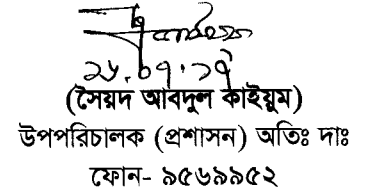 ২৬.০৭.১৭
(সৈয়দ আবদুল কাইয়ুম)
উপপরিচালক (প্রশাসন) অতিঃ দাঃ
ফোন- ৯৫৬৯৯৫২